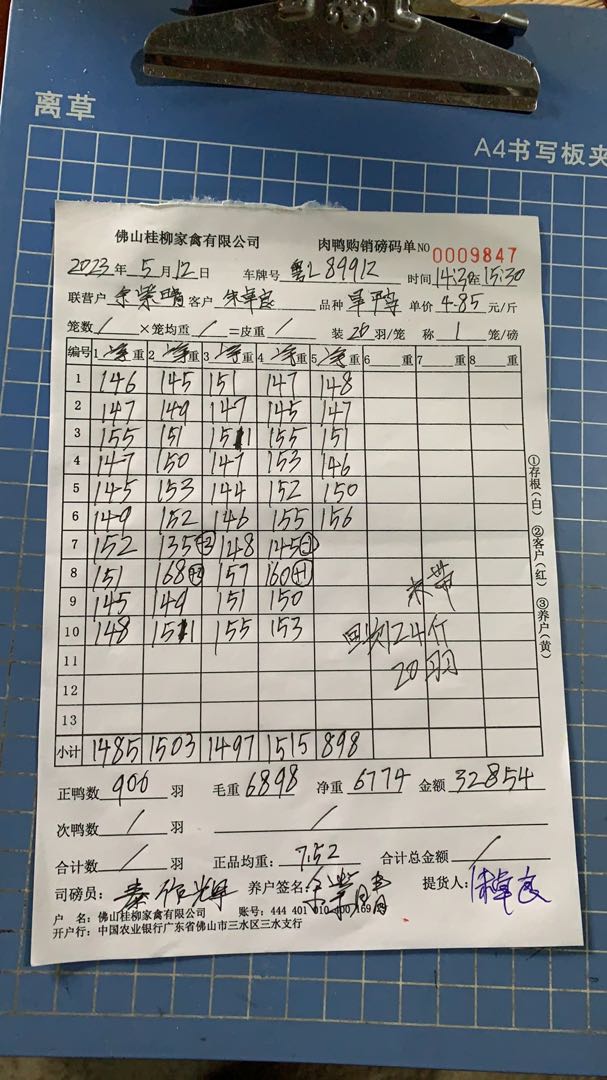 离草
A4书写板夹
佛山桂柳家禽有限公司 肉鸭购销磅码单 NO 0009847
2023年5月12日 车牌号 粤L 89912 时间 14:30至15:30
联营户 余紫晴 客户 朱卓良 品种 单价 4.85 元/斤
笼数 / ×笼均重 / =皮重 / 装 20 羽/笼 称 1 笼/磅
编号 1 重 2 重 3 重 4 重 5 重 6 重 7 重 8 重
1 146 145 151 147 148
2 147 149 147 145 147
3 155 151 151 155 151
4 147 150 147 153 146
5 145 153 144 152 150
6 149 152 146 155 156
7 152 135 148 145
8 151 168 157 160 +1
9 145 149 151 150
10 148 151 155 153
11
12
13
124斤
20羽
小计 1485 1503 1497 1515 898
正鸭数 900 羽 毛重 6898 净重 6774 金额 32854
次鸭数 / 羽 /
合计数 / 羽 正品均重: 7.52 合计总金额 /
司磅员: 秦 辉 养户签名: 余紫晴 提货人: 朱卓良
户 名: 佛山桂柳家禽有限公司 账号: 444 401 010 400 169
开户行: 中国农业银行广东省佛山市三水区三水支行
①存根(白) ②客户(红) ③养户(黄)